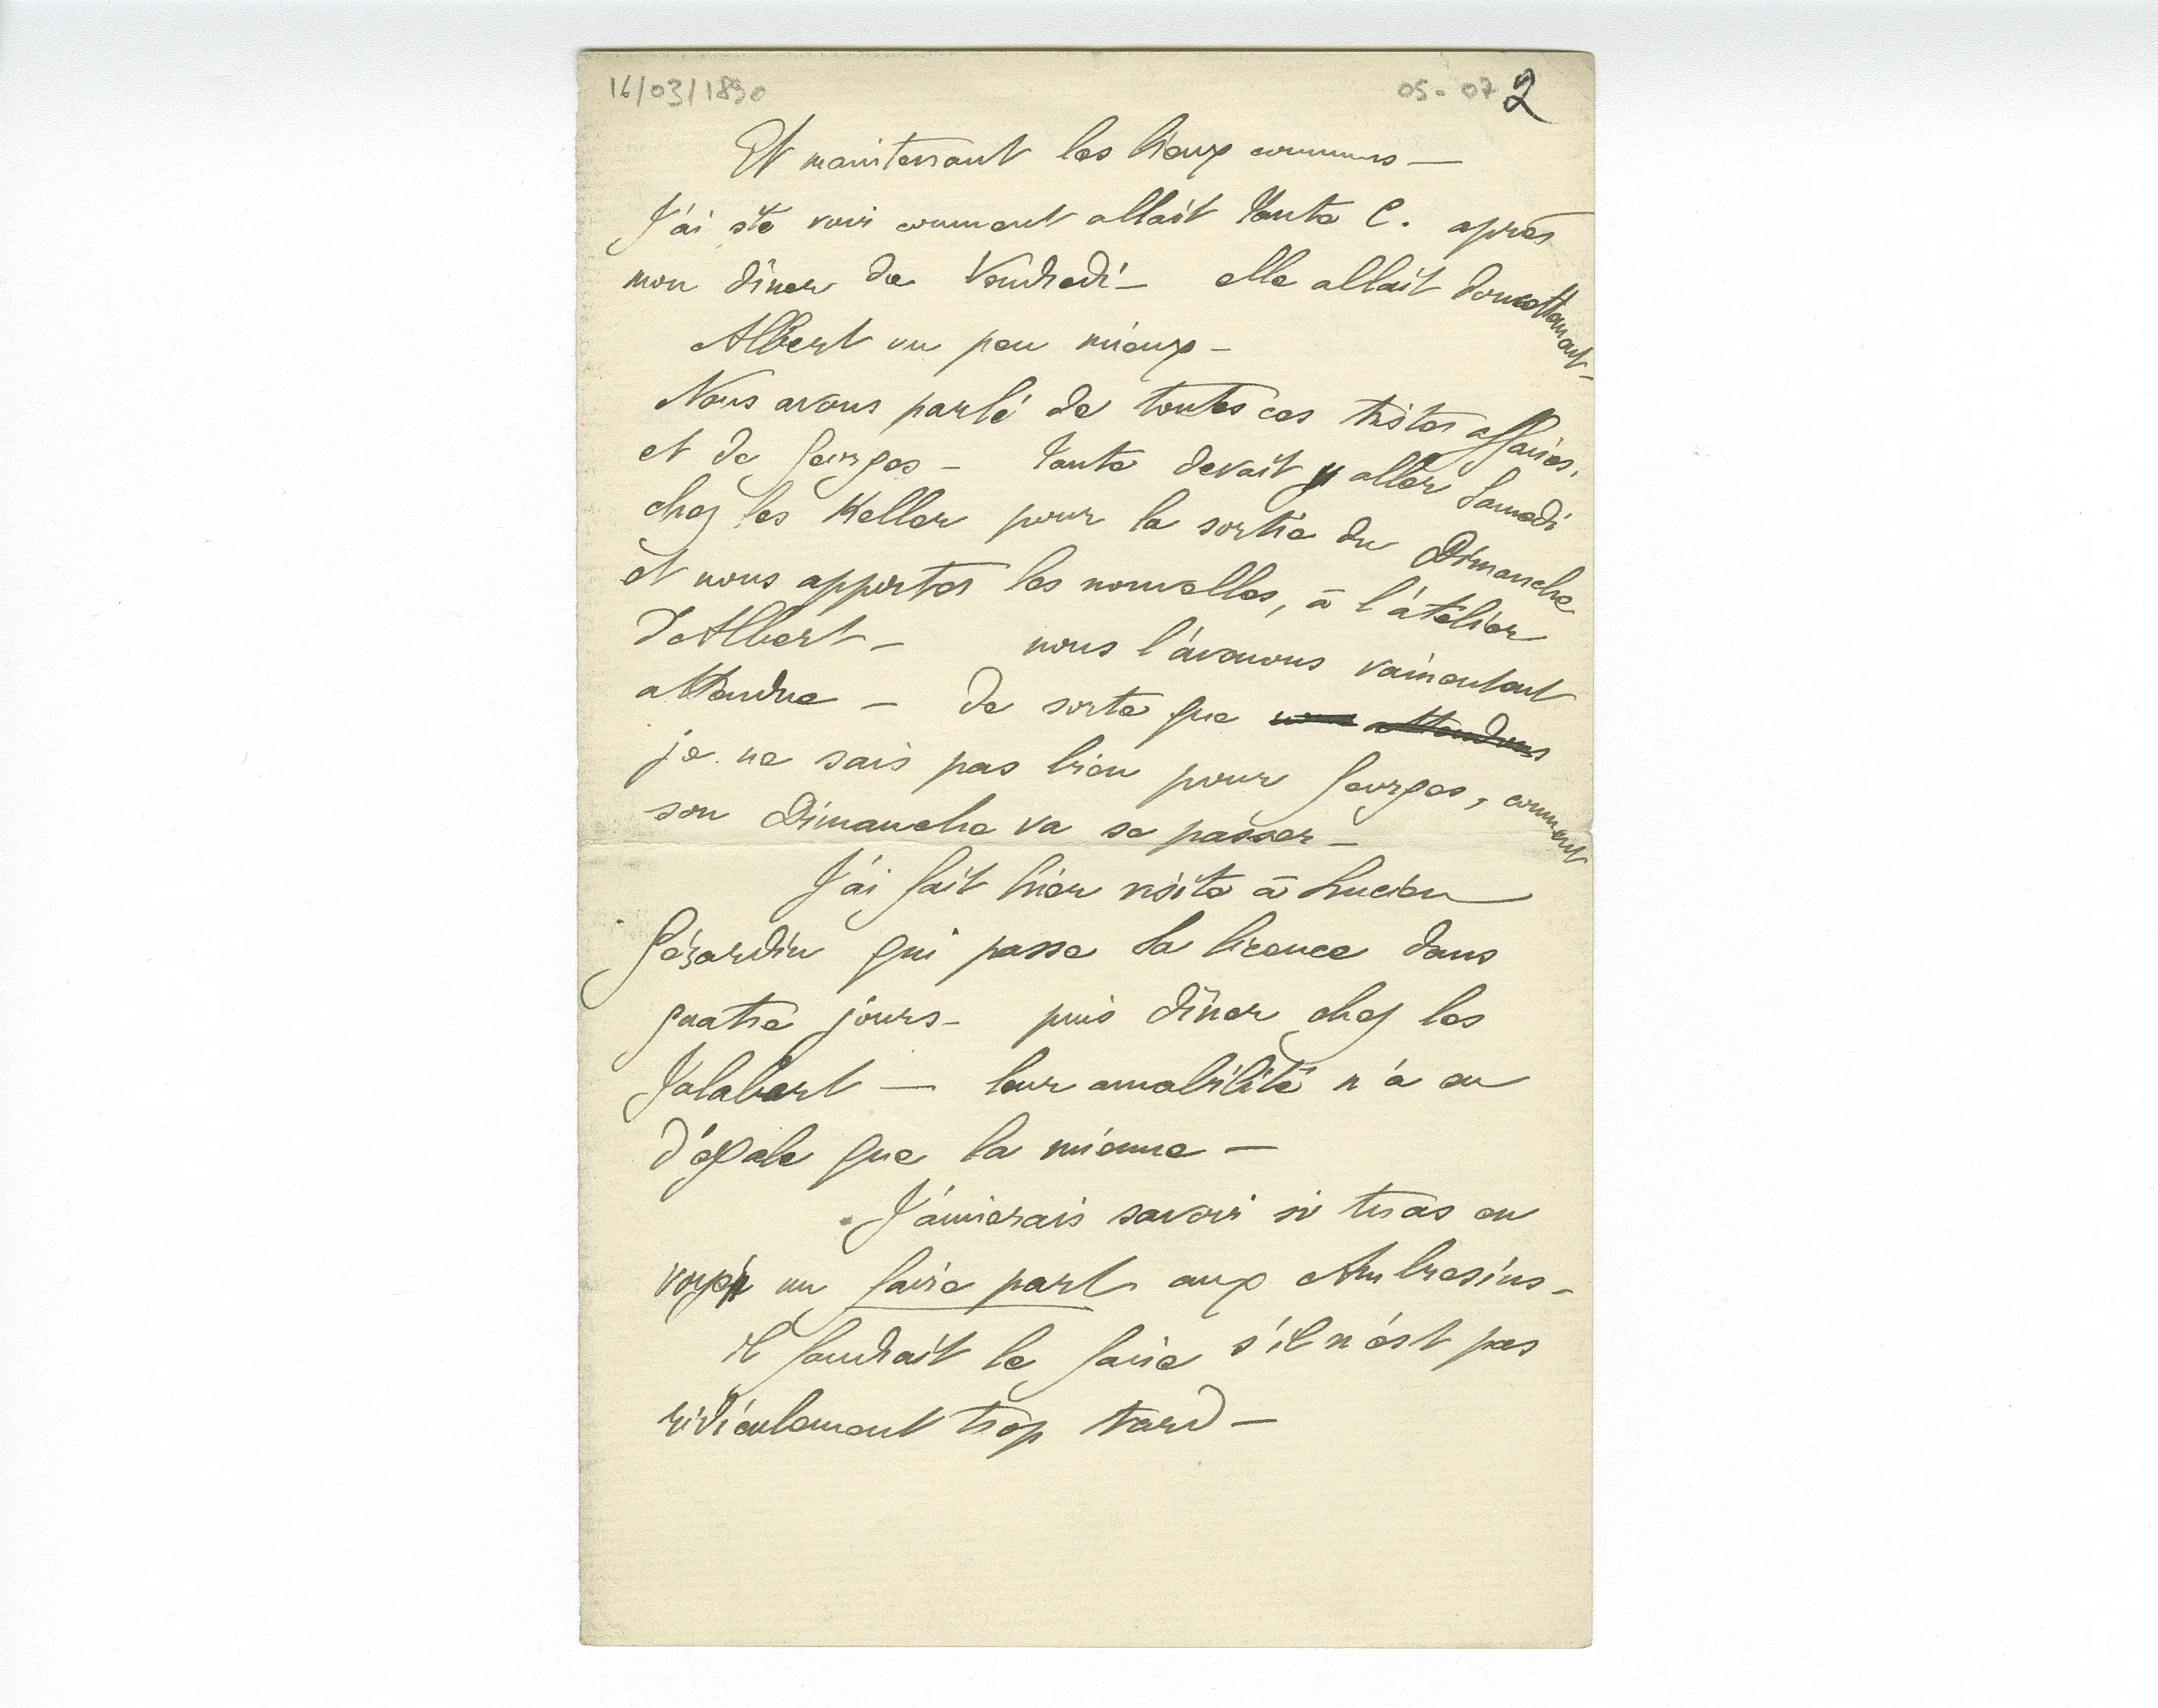 16/03/1890 05-07 2
Et maintenant les lieux communs —
J'ai été voir comment allait Tante C. après
mon dîner de Vendredi — elle allait doucettement —
Albert un peu mieux —
Nous avons parlé de toutes ces tristes affaires,
et de Georges — Tante devait y aller Samedi
chez les Keller pour la sortie du Dimanche
et nous apporter les nouvelles, à l'atelier
d'Albert — nous l'avons vainement
attendue — de sorte que nous attendons
je ne sais pas bien pour Georges, comment
son Dimanche va se passer —
J'ai fait hier visite à Lucien
Gérardin qui passe sa licence dans
quatre jours — puis dîner chez les
Jalabert — leur amabilité n'a eu
d'égale que la mienne —
J'aimerais savoir si tu as en
voyé un faire part aux Ambresins —
il faudrait le faire s'il n'est pas
ridiculement trop tard —